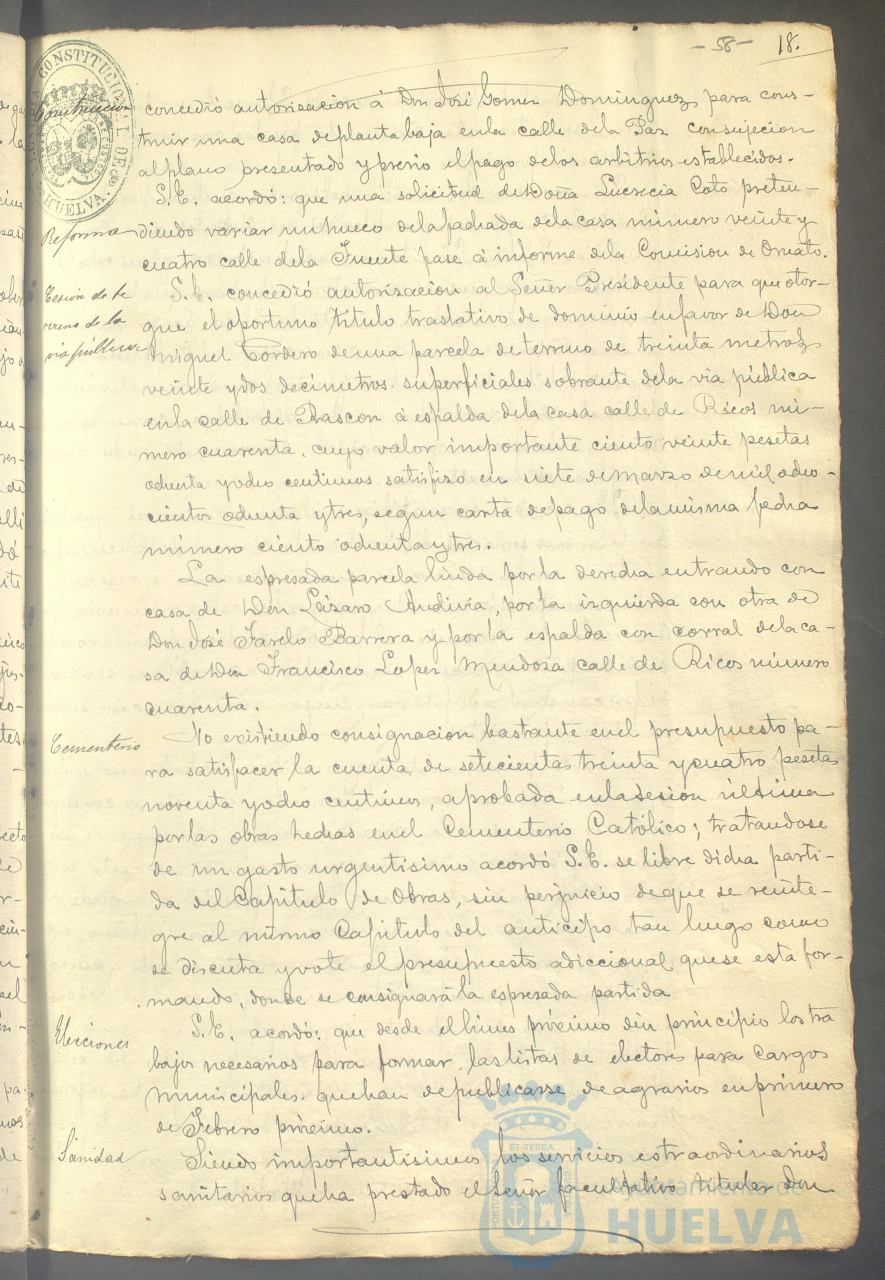 -58- 18.
ALCALDIA CONSTITUCIONAL DE HUELVA.
Construccion
concedió autorizacion á Don José Gomez Dominguez para cons-
truir una casa de planta baja en la calle de la Paz con sujecion
al plano presentado y previo el pago de los arbitrios establecidos.
S.E. acordó: que una solicitud de Doña Lucrecia Coto preten-
Reforma
diendo variar un hueco de la fachada de la casa número veinte y
cuatro calle de la Fuente pase á informe de la Comision de Ornato.
Cesión de te
rreno de la
via pública
S.E. concedió autorizacion al Señor Presidente para que otor-
gue el oportuno título traslativo de dominio en favor de Don
Miguel Cordero de una parcela de terreno de treinta metros
veinte y dos decímetros superficiales sobrante de la via pública
en la calle de Rascon á espalda de la casa calle de Ricos nú-
mero cuarenta, cuyo valor importante ciento veinte pesetas
ochenta y ocho centimos satisfizo en siete de Marzo de mil ocho-
cientos ochenta y tres, segun carta de pago de la misma fecha
número ciento ochenta y tres.
La espresada parcela linda por la derecha entrando con
casa de Don Lázaro Andivia, por la izquierda con otra de
Don José Farelo Barrera y por la espalda con corral de la ca-
sa de Don Francisco Lopez Mendoza calle de Ricos número
cuarenta.
Cementerio
No existiendo consignacion bastante en el presupuesto pa-
ra satisfacer la cuenta de setecientas treinta y cuatro pesetas
noventa y ocho centimos, aprobada en la sesion última
por las obras hechas en el Cementerio Católico; tratandose
de un gasto urgentísimo acordó S.E. se libre dicha parti-
da del Capitulo de Obras, sin perjuicio de que se reinte-
gre al mismo Capitulo del anticipo tan luego como
se discuta y vote el presupuesto adiccional que se está for-
mando, donde se consignará la espresada partida
Elecciones
S.E. acordó: que desde el lunes próximo den principio los tra
bajos necesarios para formar las listas de electores para cargos
municipales que han de publicarse de agrarios en primero
de Febrero próximo.
Sanidad
Siendo importantísimos los servicios estraordinarios
sanitarios que ha prestado el Señor facultativo titular Don
PORTUS MARIS ET TERRAE CUSTODIA
Ayuntamiento de
HUELVA